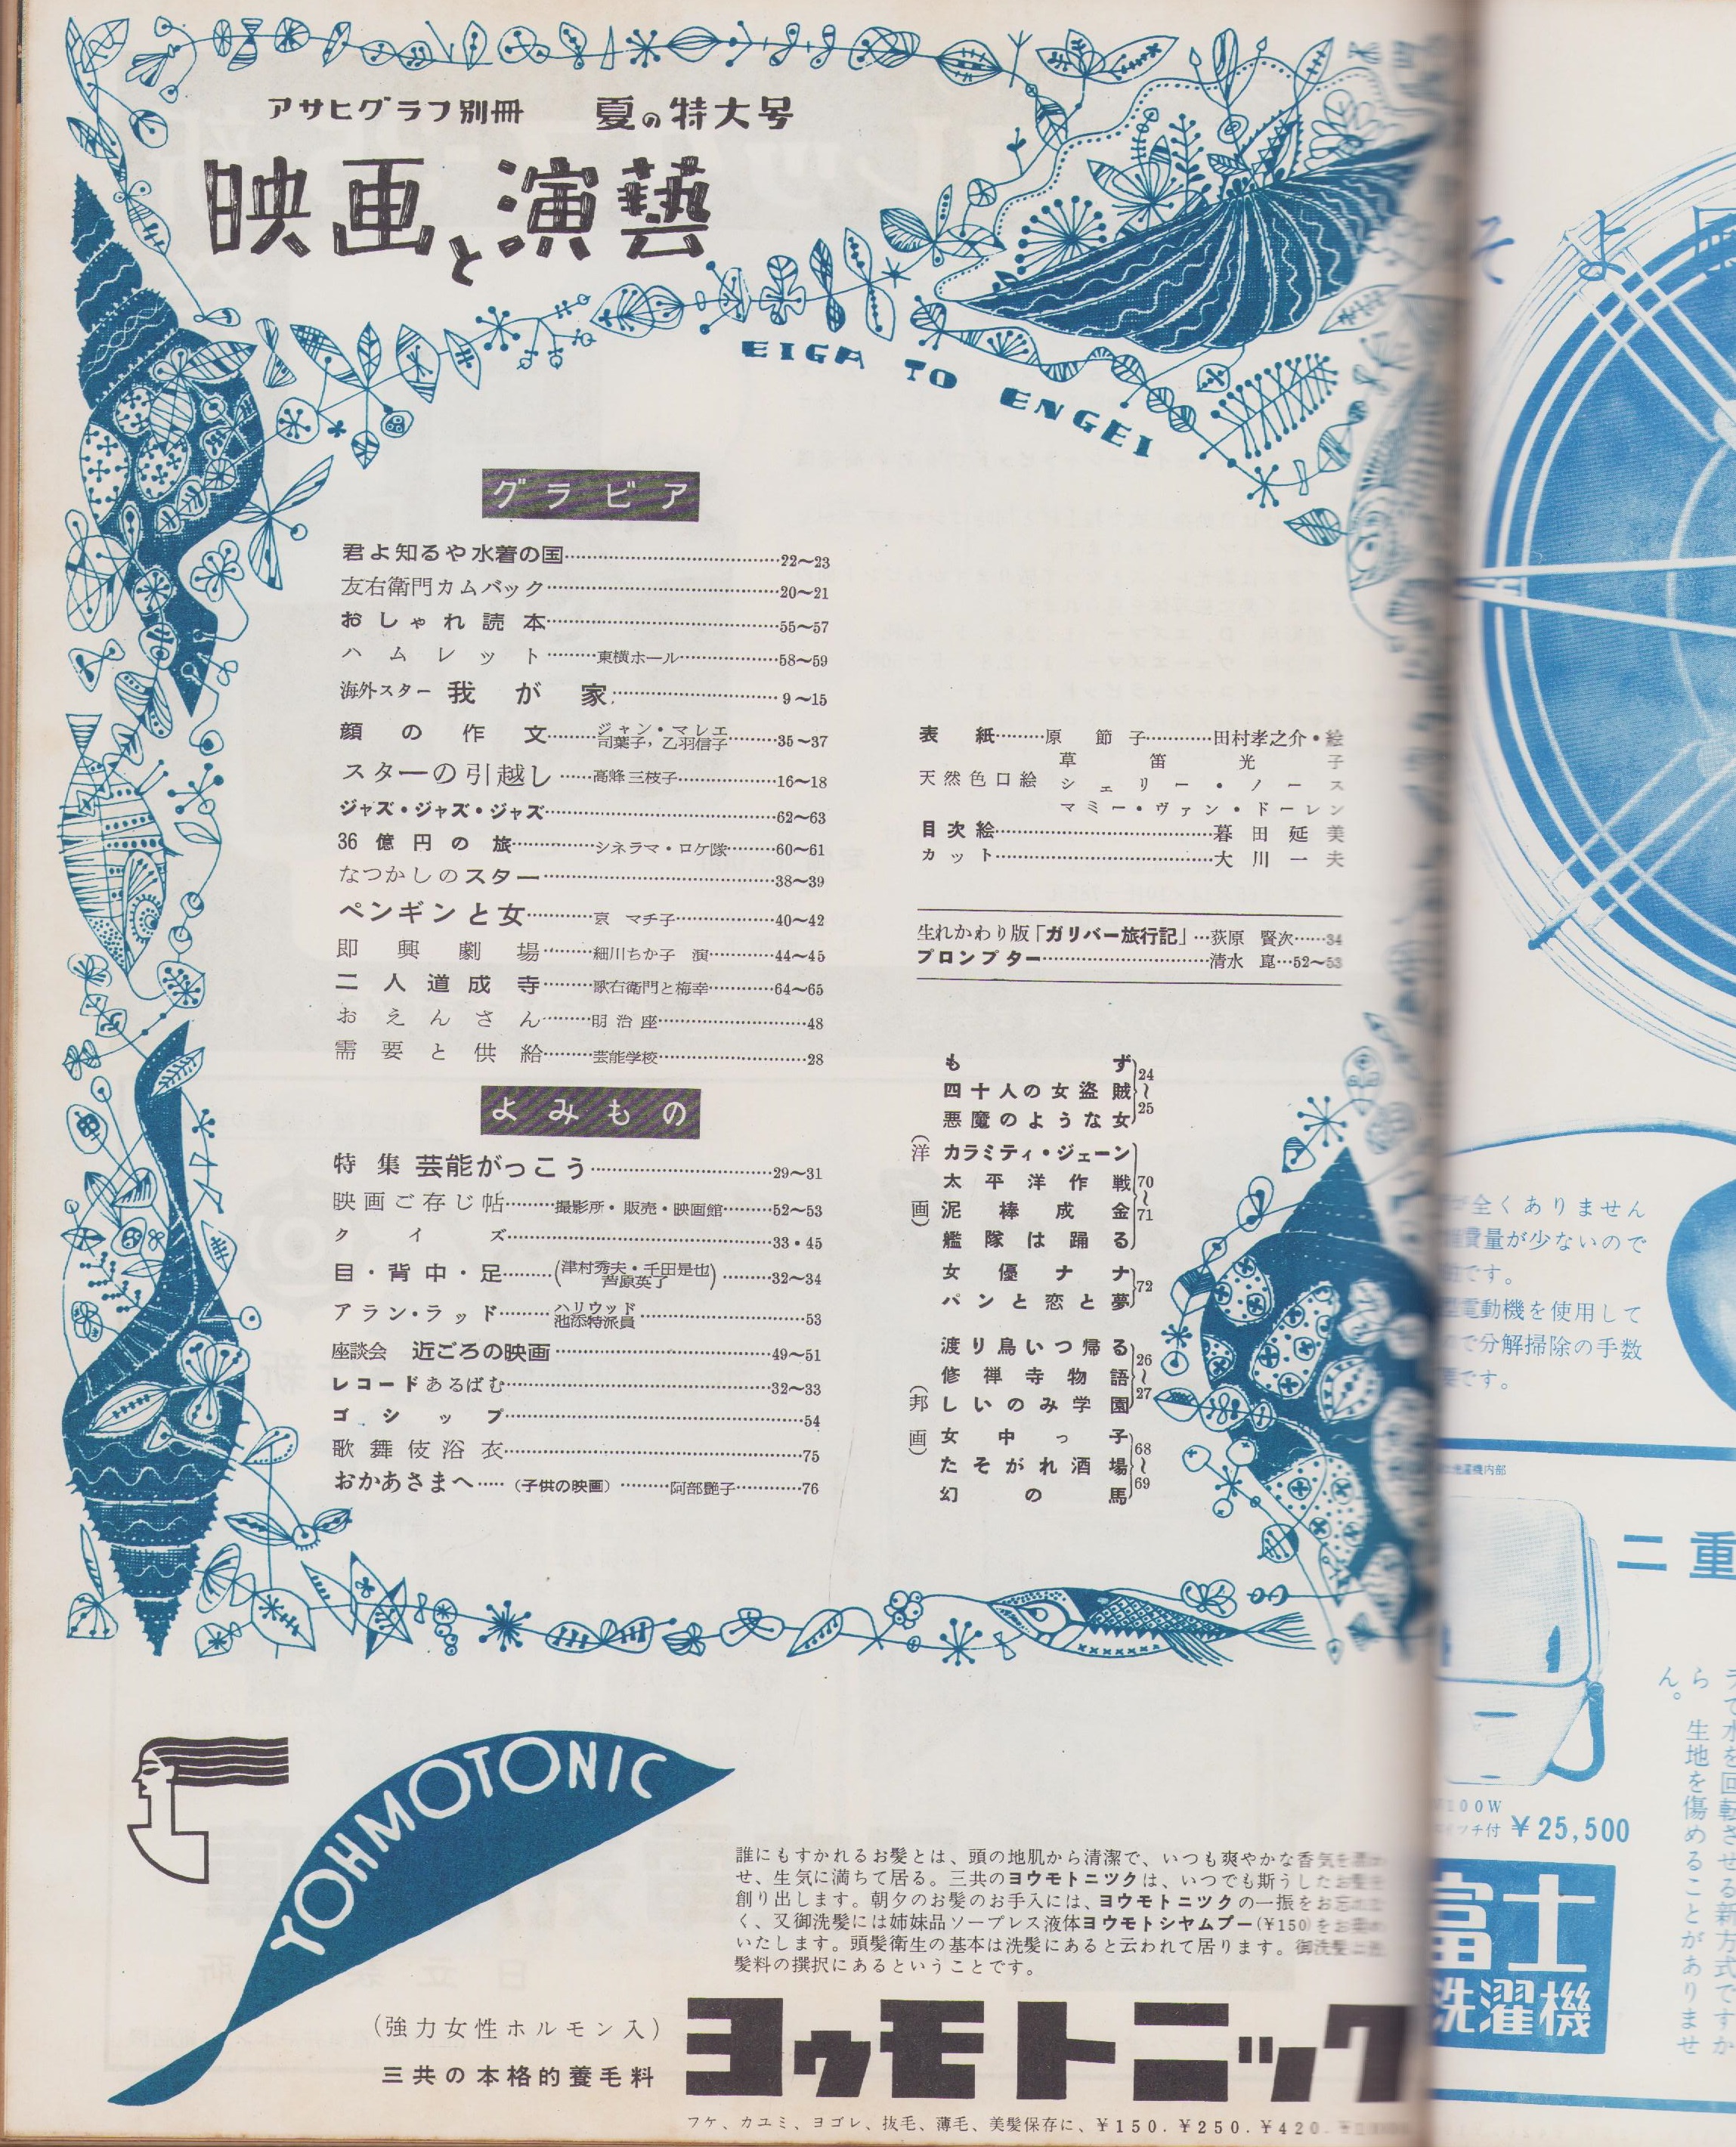 アサヒグラフ別冊　夏の特大号
映画と演藝
EIGA TO ENGEI
グラビア
君よ知るや水着の国……22〜23
友右衛門カムバック……20〜21
おしゃれ読本……55〜57
ハムレット……東横ホール……58〜59
海外スター 我が家……9〜15
顔の作文……ジャン・マレエ 司葉子，乙羽信子……35〜37
スターの引越し……高峰三枝子……16〜18
ジャズ・ジャズ・ジャズ……62〜63
36億円の旅……シネラマ・ロケ隊……60〜61
なつかしのスター……38〜39
ペンギンと女……京 マチ子……40〜42
即興劇場……細川ちか子 演……44〜45
二人道成寺……歌右衛門と梅幸……64〜65
おえんさん……明治座……48
需要と供給……芸能学校……28
よみもの
特集 芸能がっこう……29〜31
映画ご存じ帖……撮影所・販売・映画館……52〜53
クイズ……33・45
目・背中・足……(津村秀夫・千田是也 芦原英了)……32〜34
アラン・ラッド……ハリウッド 池添特派員……53
座談会 近ごろの映画……49〜51
レコードあるばむ……32〜33
ゴシップ……54
歌舞伎浴衣……75
おかあさまへ……（子供の映画）……阿部艶子……76
表紙……原節子……田村孝之介・絵
草笛光子
天然色口絵 シェリー・ノース
マミー・ヴァン・ドーレン
目次絵……暮田延美
カット……大川一夫
生れかわり版「ガリバー旅行記」…荻原 賢次……34
プロンプター……清水 崑…52〜53
（洋画）
もず
四十人の女盗賊
悪魔のような女
24〜25
カラミティ・ジェーン
太平洋作戦
泥棒成金
艦隊は踊る
70〜71
女優ナナ
パンと恋と夢
72
（邦画）
渡り鳥いつ帰る
修禅寺物語
しいのみ学園
26〜27
女中っ子
たそがれ酒場
幻の馬
68〜69
YOHMOTONIC
誰にもすかれるお髪とは、頭の地肌から清潔で、いつも爽やかな香気を
せ、生気に満ちて居る。三共のヨウモトニツクは、いつでも斯うしたお髪を
創り出します。朝夕のお髪のお手入には、ヨウモトニツクの一振をお忘れな
く、又御洗髪には姉妹品ソープレス液体ヨウモトシヤムプー(¥150)をお奨め
いたします。頭髪衛生の基本は洗髪にあると云われて居ります。御洗髪は
髪料の撰択にあるということです。
（強力女性ホルモン入）
三共の本格的養毛料
ヨウモトニック
フケ、カユミ、ヨゴレ、抜毛、薄毛、美髪保存に、¥150.¥250.¥420.
そよ風
が全くありません
費量が少ないので
です。
電動機を使用して
で分解掃除の手数
です。
洗濯機内部
二重
100W
¥25,500
富士
洗濯機
て水を回転させる新方式ですか
ら 生地を傷めることがありませ
ん。